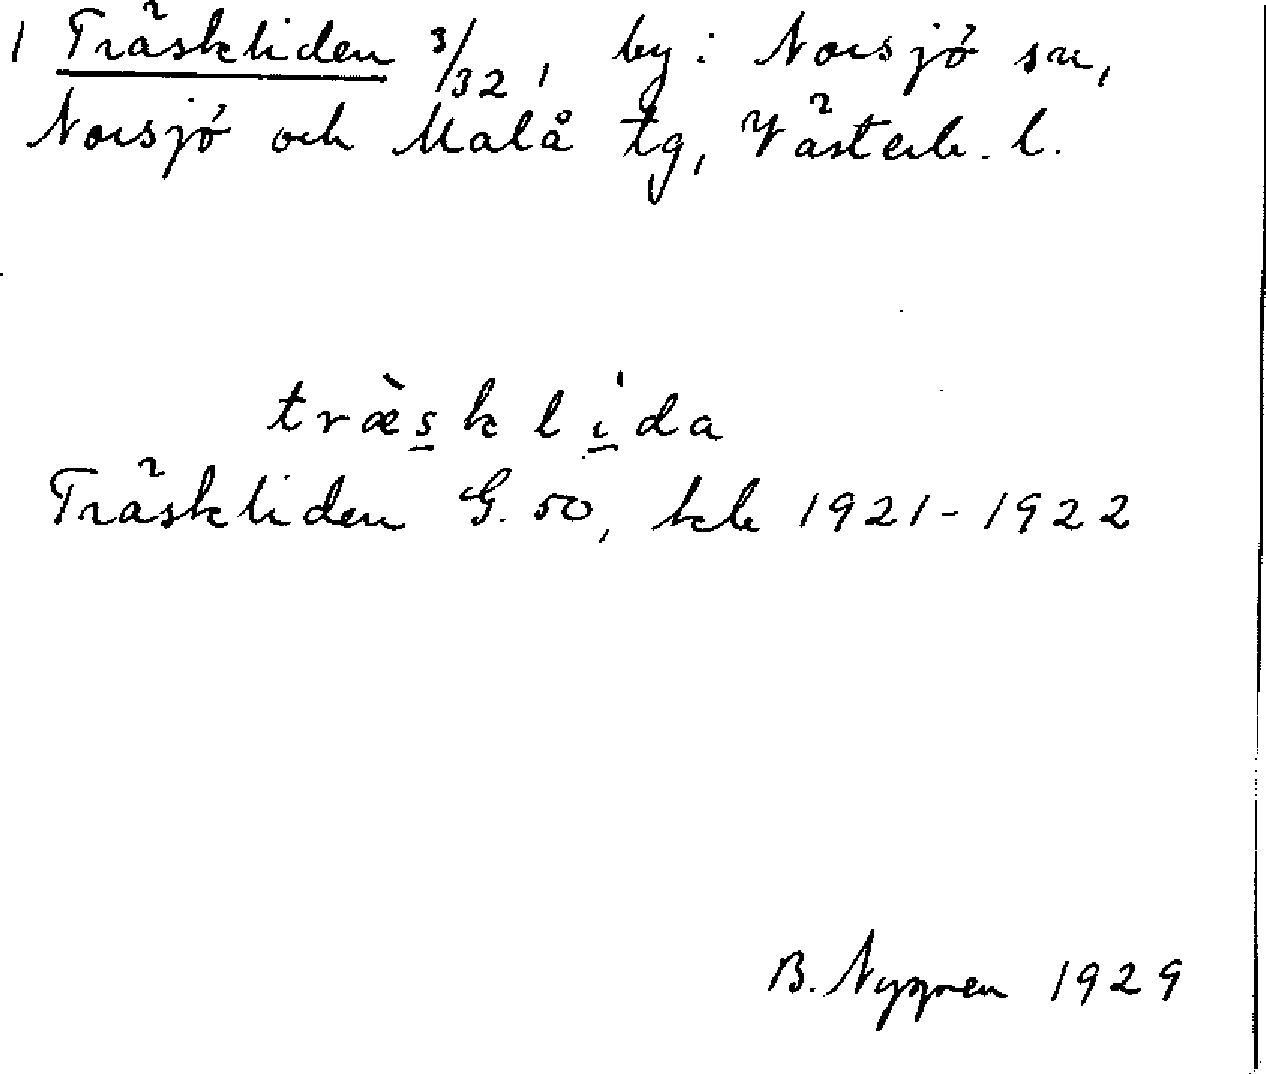 1 Träskliden 3/32, by: Norsjö sn,
Norsjö och Malå tg, Västerb. l.
træ̀sklída
Träskliden G. 50, kb 1921-1922
B. Nygren 1929